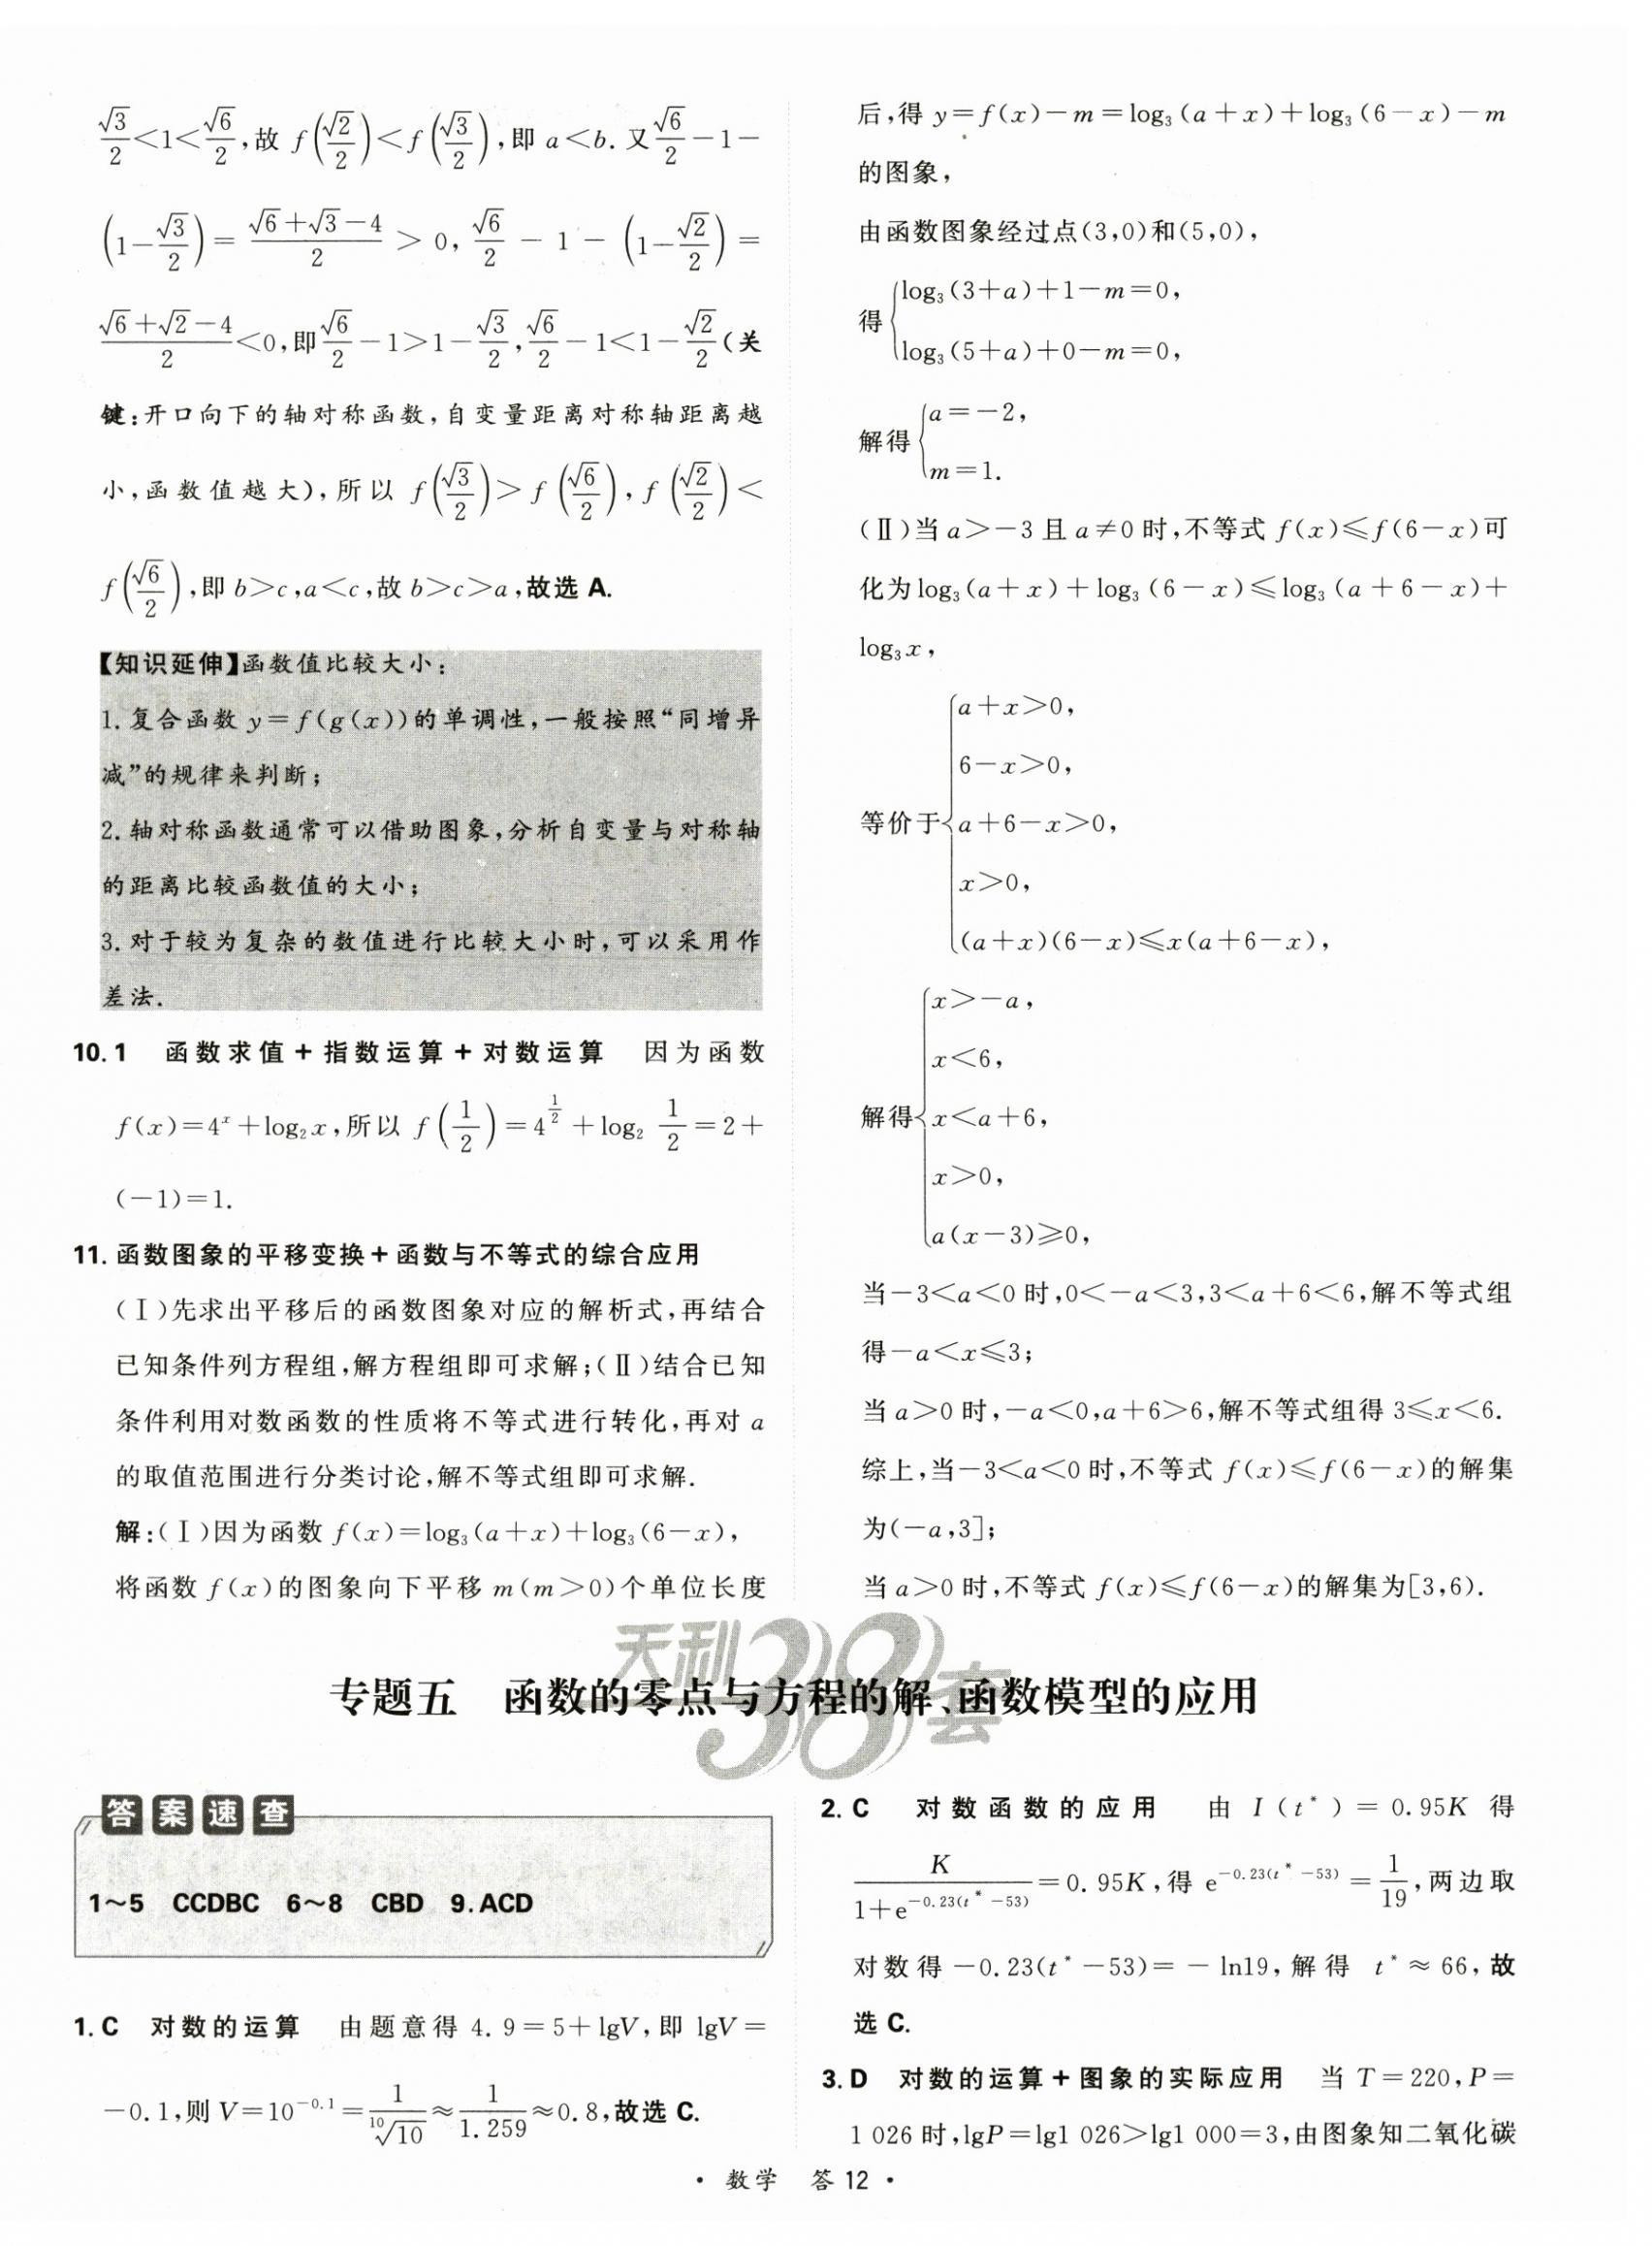 √3/2<1<√6/2,故 f(√2/2)<f(√3/2),即 a<b. 又√6/2-1-
(1-√3/2)=(√6+√3-4)/2>0,√6/2-1-(1-√2/2)=
(√6+√2-4)/2<0,即√6/2-1>1-√3/2,√6/2-1<1-√2/2(关
键:开口向下的轴对称函数,自变量距离对称轴距离越
小,函数值越大),所以 f(√3/2)>f(√6/2),f(√2/2)<
f(√6/2),即 b>c,a<c,故 b>c>a,故选 A.
【知识延伸】函数值比较大小:
1. 复合函数 y=f(g(x))的单调性,一般按照“同增异
减”的规律来判断;
2. 轴对称函数通常可以借助图象,分析自变量与对称轴
的距离比较函数值的大小;
3. 对于较为复杂的数值进行比较大小时,可以采用作
差法.
10. 1 函数求值+指数运算+对数运算 因为函数
f(x)=4ˣ+log₂x,所以 f(1/2)=4^(1/2)+log₂ 1/2=2+
(-1)=1.
11. 函数图象的平移变换+函数与不等式的综合应用
(Ⅰ)先求出平移后的函数图象对应的解析式,再结合
已知条件列方程组,解方程组即可求解;(Ⅱ)结合已知
条件利用对数函数的性质将不等式进行转化,再对 a
的取值范围进行分类讨论,解不等式组即可求解.
解:(Ⅰ)因为函数 f(x)=log₃(a+x)+log₃(6-x),
将函数 f(x)的图象向下平移 m(m>0)个单位长度
后,得 y=f(x)-m=log₃(a+x)+log₃(6-x)-m
的图象,
由函数图象经过点(3,0)和(5,0),
得{log₃(3+a)+1-m=0,
log₃(5+a)+0-m=0,
解得{a=-2,
m=1.
(Ⅱ)当 a>-3 且 a≠0 时,不等式 f(x)≤f(6-x)可
化为 log₃(a+x)+log₃(6-x)≤log₃(a+6-x)+
log₃x,
等价于{a+x>0,
6-x>0,
a+6-x>0,
x>0,
(a+x)(6-x)≤x(a+6-x),
解得{x>-a,
x<6,
x<a+6,
x>0,
a(x-3)≥0,
当-3<a<0 时,0<-a<3,3<a+6<6,解不等式组
得-a<x≤3;
当 a>0 时,-a<0,a+6>6,解不等式组得 3≤x<6.
综上,当-3<a<0 时,不等式 f(x)≤f(6-x)的解集
为(-a,3];
当 a>0 时,不等式 f(x)≤f(6-x)的解集为[3,6).
天利38套
专题五 函数的零点与方程的解、函数模型的应用
答案速查
1~5 CCDBC 6~8 CBD 9. ACD
1. C 对数的运算 由题意得 4.9=5+lgV,即 lgV=
-0.1,则 V=10^(-0.1)=1/¹⁰√10≈1/1.259≈0.8,故选 C.
2. C 对数函数的应用 由 I(t*)=0.95K 得
K/(1+e^(-0.23(t*-53)))=0.95K,得 e^(-0.23(t*-53))=1/19,两边取
对数得-0.23(t*-53)=-ln19,解得 t*≈66,故
选 C.
3. D 对数的运算+图象的实际应用 当 T=220,P=
1 026 时,lgP=lg1 026>lg1 000=3,由图象知二氧化碳
· 数学 答 12 ·